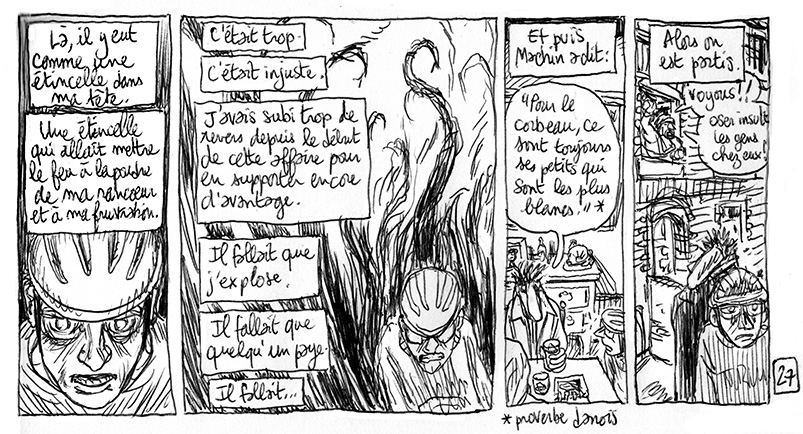 Là, il y eut
comme une
étincelle dans
ma tête.
Une étincelle
qui allait mettre
le feu à la poudre
de ma rancoeur
et à ma frustration.
C'était trop.
C'était injuste.
J'avais subi trop de
revers depuis le début
de cette affaire pour
en supporter encore
d'avantage.
Il fallait que
j'explose.
Il fallait que
quelqu'un paye.
Il fallait...
Et puis
Machin a dit:
"Pour le
corbeau, ce
sont toujours
ses petits qui
sont les plus
blancs."*
* proverbe danois
Alors on
est partis.
Voyous!!
oser insult
les gens
chez eux!
27